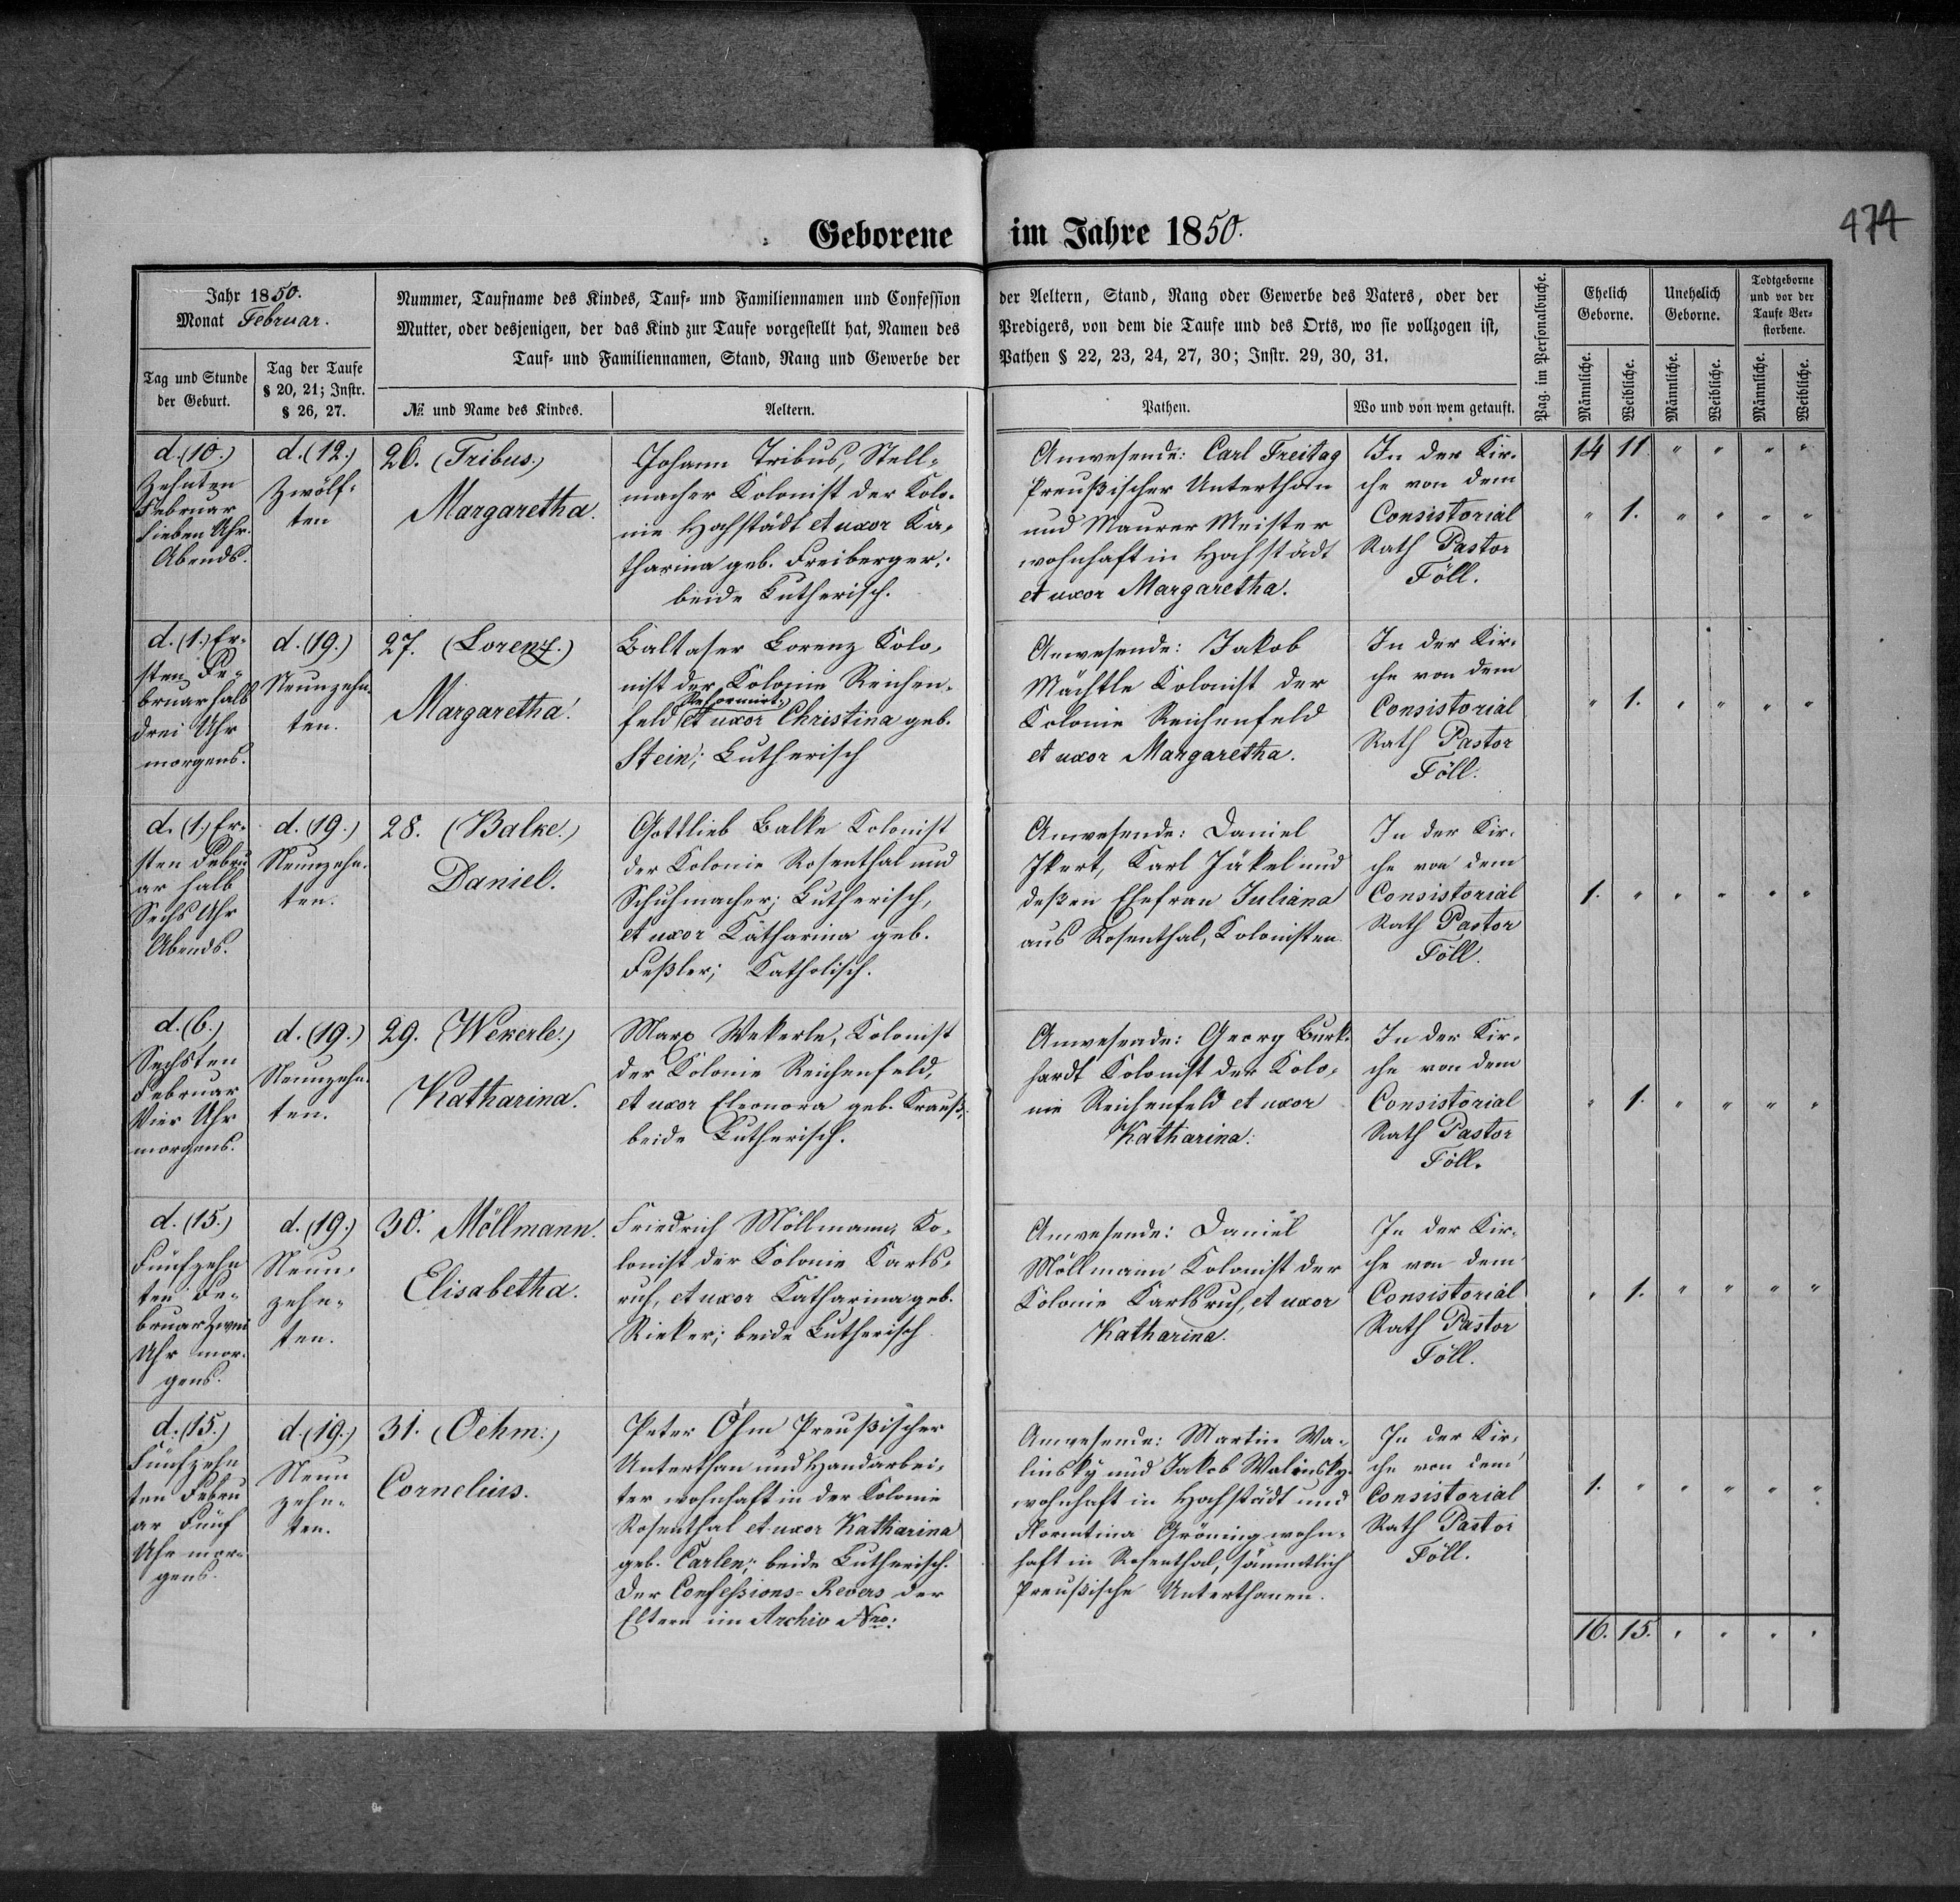 Geborene im Jahre 1850.
474
Jahr 1850.
Monat Februar.
Tag und Stunde
der Geburt.
Tag der Taufe
§ 20, 21; Instr.
§ 26, 27.
Nummer, Taufname des Kindes, Tauf- und Familiennamen und Confession
Mutter, oder desjenigen, der das Kind zur Taufe vorgestellt hat, Namen des
Tauf- und Familiennamen, Stand, Rang und Gewerbe der
№ und Name des Kindes.
Aeltern.
der Aeltern, Stand, Rang oder Gewerbe des Vaters, oder der
Predigers, von dem die Taufe und des Orts, wo sie vollzogen ist,
Pathen § 22, 23, 24, 27, 30; Instr. 29, 30, 31.
Pathen.
Wo und von wem getauft.
Pag. im Personalbuche.
Ehelich
Geborne.
Unehelich
Geborne.
Todtgeborne
und vor der
Taufe Ver-
storbene.
Männliche.
Weibliche.
Männliche.
Weibliche.
Männliche.
Weibliche.
d. (10.)
Zehnten
Februar
sieben Uhr.
Abends.
d. (12.)
Zwölf-
ten
26. (Tribus.)
Margaretha.
Johann Tribus, Stell-
macher Kolonist der Kolo-
nie Hochstädt et uxor Ka-
tharina geb. Freiberger;
beide Lutherisch.
Anwesende: Carl Freitag
Preußischer Unterthan
und Maurer Meister
wohnhaft in Hochstädt
et uxor Margaretha.
In der Kir-
che von dem
Consistorial
Rath Pastor
Föll.
14 11 " " " "
" 1. " " " "
d. (1.) Er-
sten Fe-
bruar halb
drei Uhr
morgens.
d. (19.)
Neunzehn-
ten.
27. (Lorenz.)
Margaretha.
Baltaser Lorenz Kolo-
nist der Kolonie Reichen-
Reformirt;
feld et uxor Christina geb.
Stein; Lutherisch
Anwesende: Jakob
Mächtle Kolonist der
Kolonie Reichenfeld
et uxor Margaretha.
In der Kir-
che von dem
Consistorial
Rath Pastor
Föll.
" 1. " " " "
d. (1.) Er-
sten Febru
ar halb
Sechs Uhr
Abends.
d. (19.)
Neunzehn-
ten.
28. (Balke.)
Daniel.
Gottlieb Balke Kolonist
der Kolonie Rosenthal und
Schuhmacher; Lutherisch,
et uxor Katharina geb.
Feßler; Katholisch.
Anwesende: Daniel
Ikert, Karl Jäkel und
deßen Ehefrau Juliana
aus Rosenthal, Kolonisten
In der Kir-
che von dem
Consistorial
Rath Pastor
Föll.
1. " " " " "
d. (6.)
Sechsten
Februar
Vier Uhr
morgens.
d. (19.)
Neunzehn-
ten.
29. (Wekerle.)
Katharina.
Marx Wekerle, Kolonist
der Kolonie Reichenfeld,
et uxor Eleonora geb. Krauß;
beide Lutherisch.
Anwesende: Georg Burk-
hardt Kolonist der Kolo-
nie Reichenfeld et uxor
Katharina.
In der Kir-
che von dem
Consistorial
Rath Pastor
Föll.
" 1. " " " "
d. (15.)
Fünfzehn
ten Fe-
bruar Zwei
Uhr mor-
gens.
d. (19.)
Neun-
zehn-
ten.
30. Möllmann.
Elisabetha.
Friedrich Möllmann, Ko-
lonist der Kolonie Karls-
ruh, et uxor Katharina geb.
Rieker; beide Lutherisch.
Anwesende: Daniel
Möllmann Kolonist der
Kolonie Karlsruh, et uxor
Katharina.
In der Kir-
che von dem
Consistorial
Rath Pastor
Föll.
" 1. " " " "
d. (15.)
Fünfzehn
ten Febru
ar Fünf
Uhr mor-
gens.
d. (19.)
Neun
zehn-
ten.
31. (Oehm.)
Cornelius.
Peter Öhm Preußischer
Unterthan und Handarbei-
ter wohnhaft in der Kolonie
Rosenthal et uxor Katharina
geb. Carlen; beide Lutherisch.
Der Confessions-Revers der
Eltern im Archiv Nro:
Anwesende: Martin Wa-
linsky und Jakob Walinsky
wohnhaft in Hochstädt und
Gröning wohn-
haft in Rosenthal, sämmtlich
Preußische Unterthanen.
In der Kir-
che von dem
Consistorial
Rath Pastor
Föll.
1. " " " " "
16. 15. " " " "